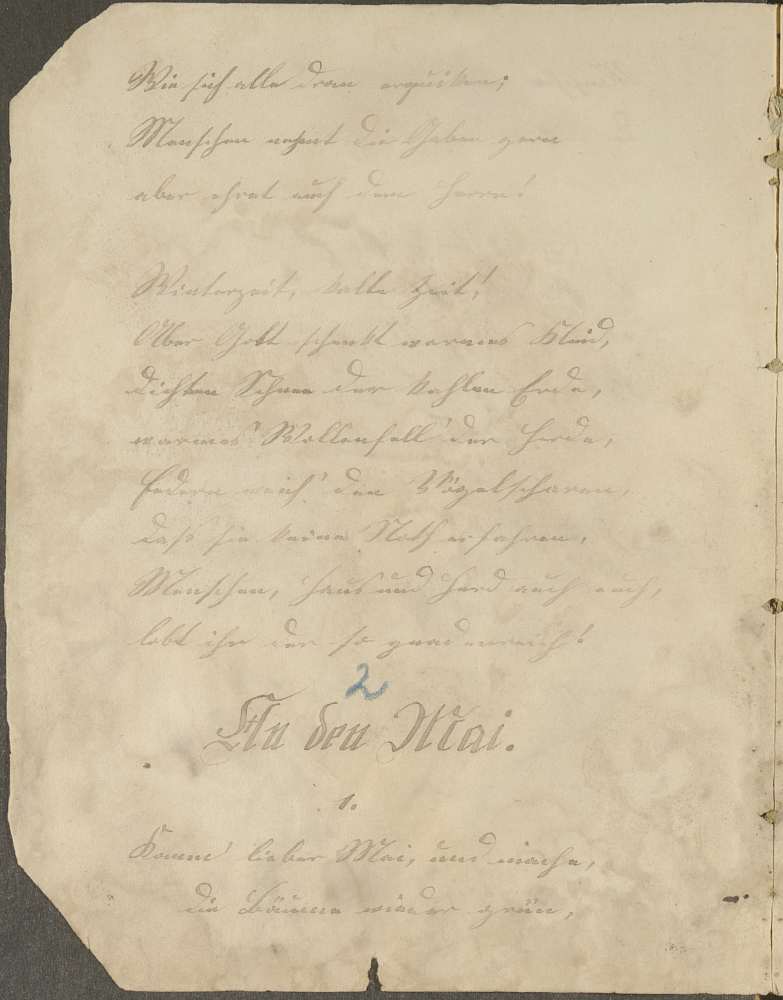 Wie sich alle dran erquicken;
Menschen nehmt die Gaben gern
aber ehret auch den Herrn!
Winterzeit, kalte Zeit!
Aber Gott schenkt warmes Kleid,
dichten Schnee der kahlen Erde,
warmes Wollenfell der Herde,
Federn weich den Vögelscharen,
daß sie keine Noth erfahren,
Menschen, Haus und Herd auch euch,
lobt ihn der so gnadenreich!
2
An den Mai.
1.
Komm' lieber Mai, und mache,
die Bäume wieder grün,